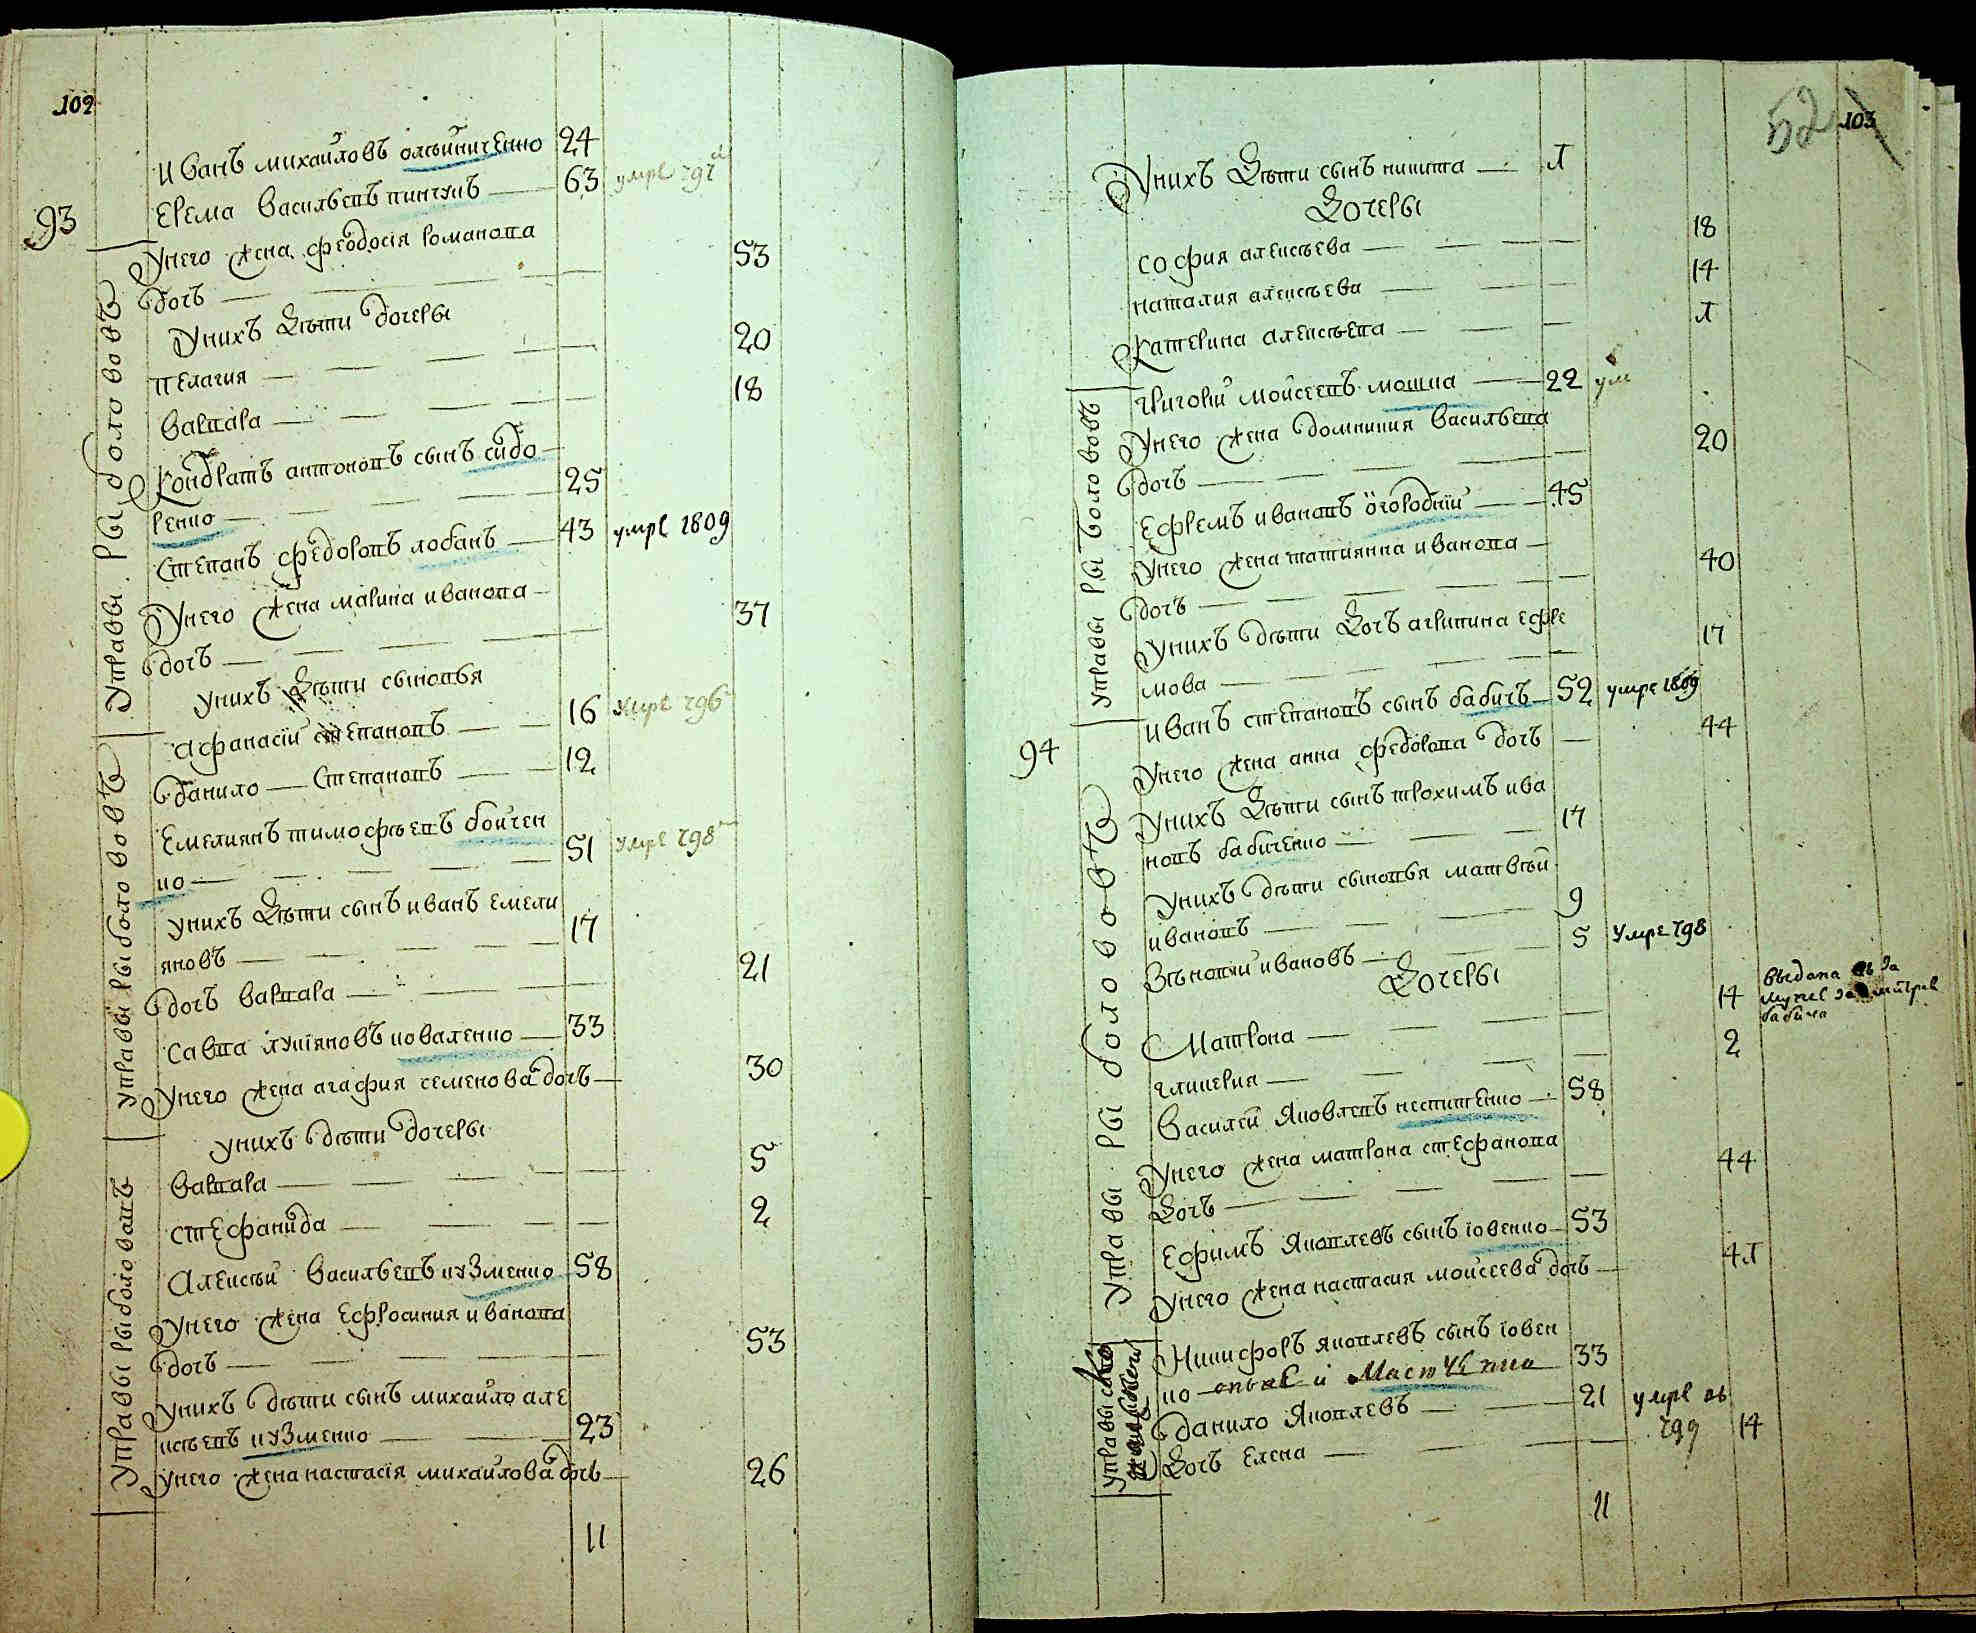 102
93
Иванъ михайловъ олѣйниченко 24
Ерема васильевъ пинчукъ 63 умре 797
Унего жена феодосія романова
дочь 53
Унихъ дѣти дочеры
пелагия 20
варвара 18
Кондратъ антоновъ сынъ сидо
ренко 25
Степанъ федоровъ лобанъ 43 умре 1809
Унего жена марина иванова
дочь 37
унихъ дѣти сыновья
афанасій степановъ 16 умре 796
данило степановъ 12
Емелиянъ тимофѣевъ бойчен
ко 51 умре 798
унихъ дѣти сынъ иванъ емели
яновъ 17
дочь варвара 21
савва лукіяновъ коваленко 33
Унего жена агафия семенова дочь 30
унихъ дѣти дочеры
варвара 5
стефанида 2
Алексѣй васильевъ кузменко 58
Унего жена Ефросиния иванова
дочь 53
Унихъ дѣти сынъ михайло але
ксѣевъ кузменко 23
Унего жена настасія михайлова дочь 26
11
Управы рыболововъ
Управы рыболововъ
Управы рыболовавъ
52
103
Унихъ дѣти сынъ никита Л
Дочеры
софия алексѣева 18
наталия алексѣева 14
Катерина алексѣева Л
григорій мойсеевъ мошна 22 ум
Унего жена домникия васильева
дочь 20
Ефремъ ивановъ огородній 45
Унего жена татиянна иванова
дочь 40
Унихъ дѣти дочь агрипина ефре
мова 17
94
иванъ степановъ сынъ бабичъ 52 умре 1809
Унего жена анна федорова дочь 44
Унихъ дѣти сынъ трохимъ ива
новъ бабиченко 17
Унихъ дѣти сыновья матвѣй
ивановъ 9
Зѣновій ивановъ 5 умре 798
Дочеры
Матрона 14 выдана за
гликерия 2
Василей Яковлевъ неспитенко 58
Унего жена матрона стефанова
Дочь 44
Ефимъ Яковлевъ сынъ іовенко 53
Унего жена настасия мойсеева дочь 4Л
Никифоръ яковлевъ сынъ іовен
ко 33
данило Яковлевъ 21 умре въ 799
Дочь Елена 14
11
Управы рыболововъ
Управы рыболововъ